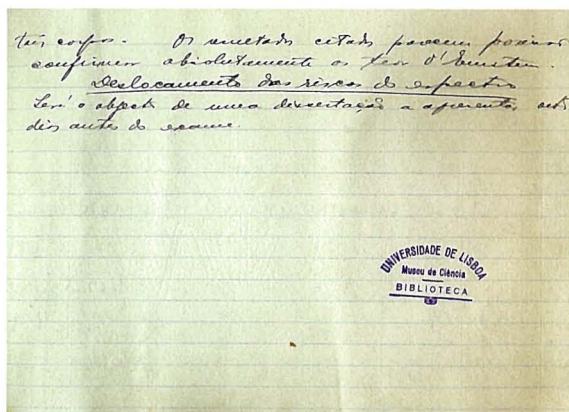 tais corpos. Os resultados citados parecem
confirmar absolutamente as d'Einstein.
Deslocamento das riscas do espectro
Será o objecto de uma dissertação a apresentar oito
dias antes do exame.
UNIVERSIDADE DE LISBOA
Museu de Ciência
BIBLIOTECA